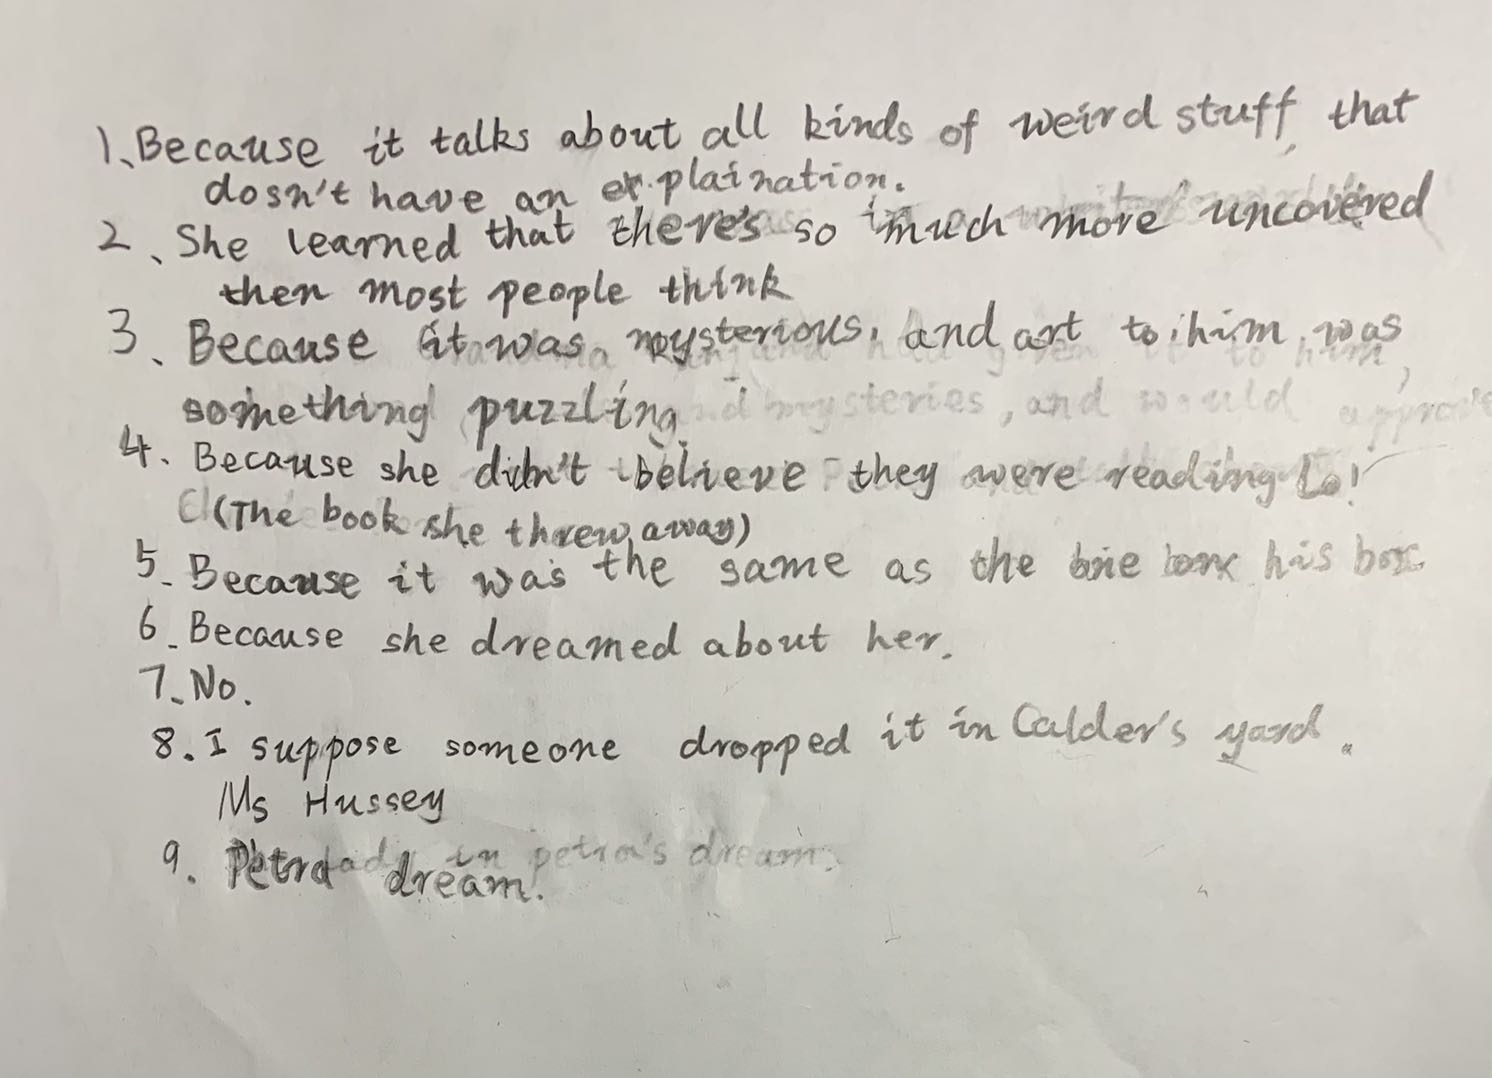 1、Because it talks about all kinds of weird stuff, that
dosn't have an explaination.
2、She learned that there's so much more uncovered
then most people think
3、Because it was mysterious, and art to him was
something puzzling.
4. Because she didn't believe they were reading Lo!
(The book she threw away)
5. Because it was the same as the one his box
6. Because she dreamed about her.
7. No.
8. I suppose someone dropped it in Calder's yard.
Ms Hussey
9. Petra dream.